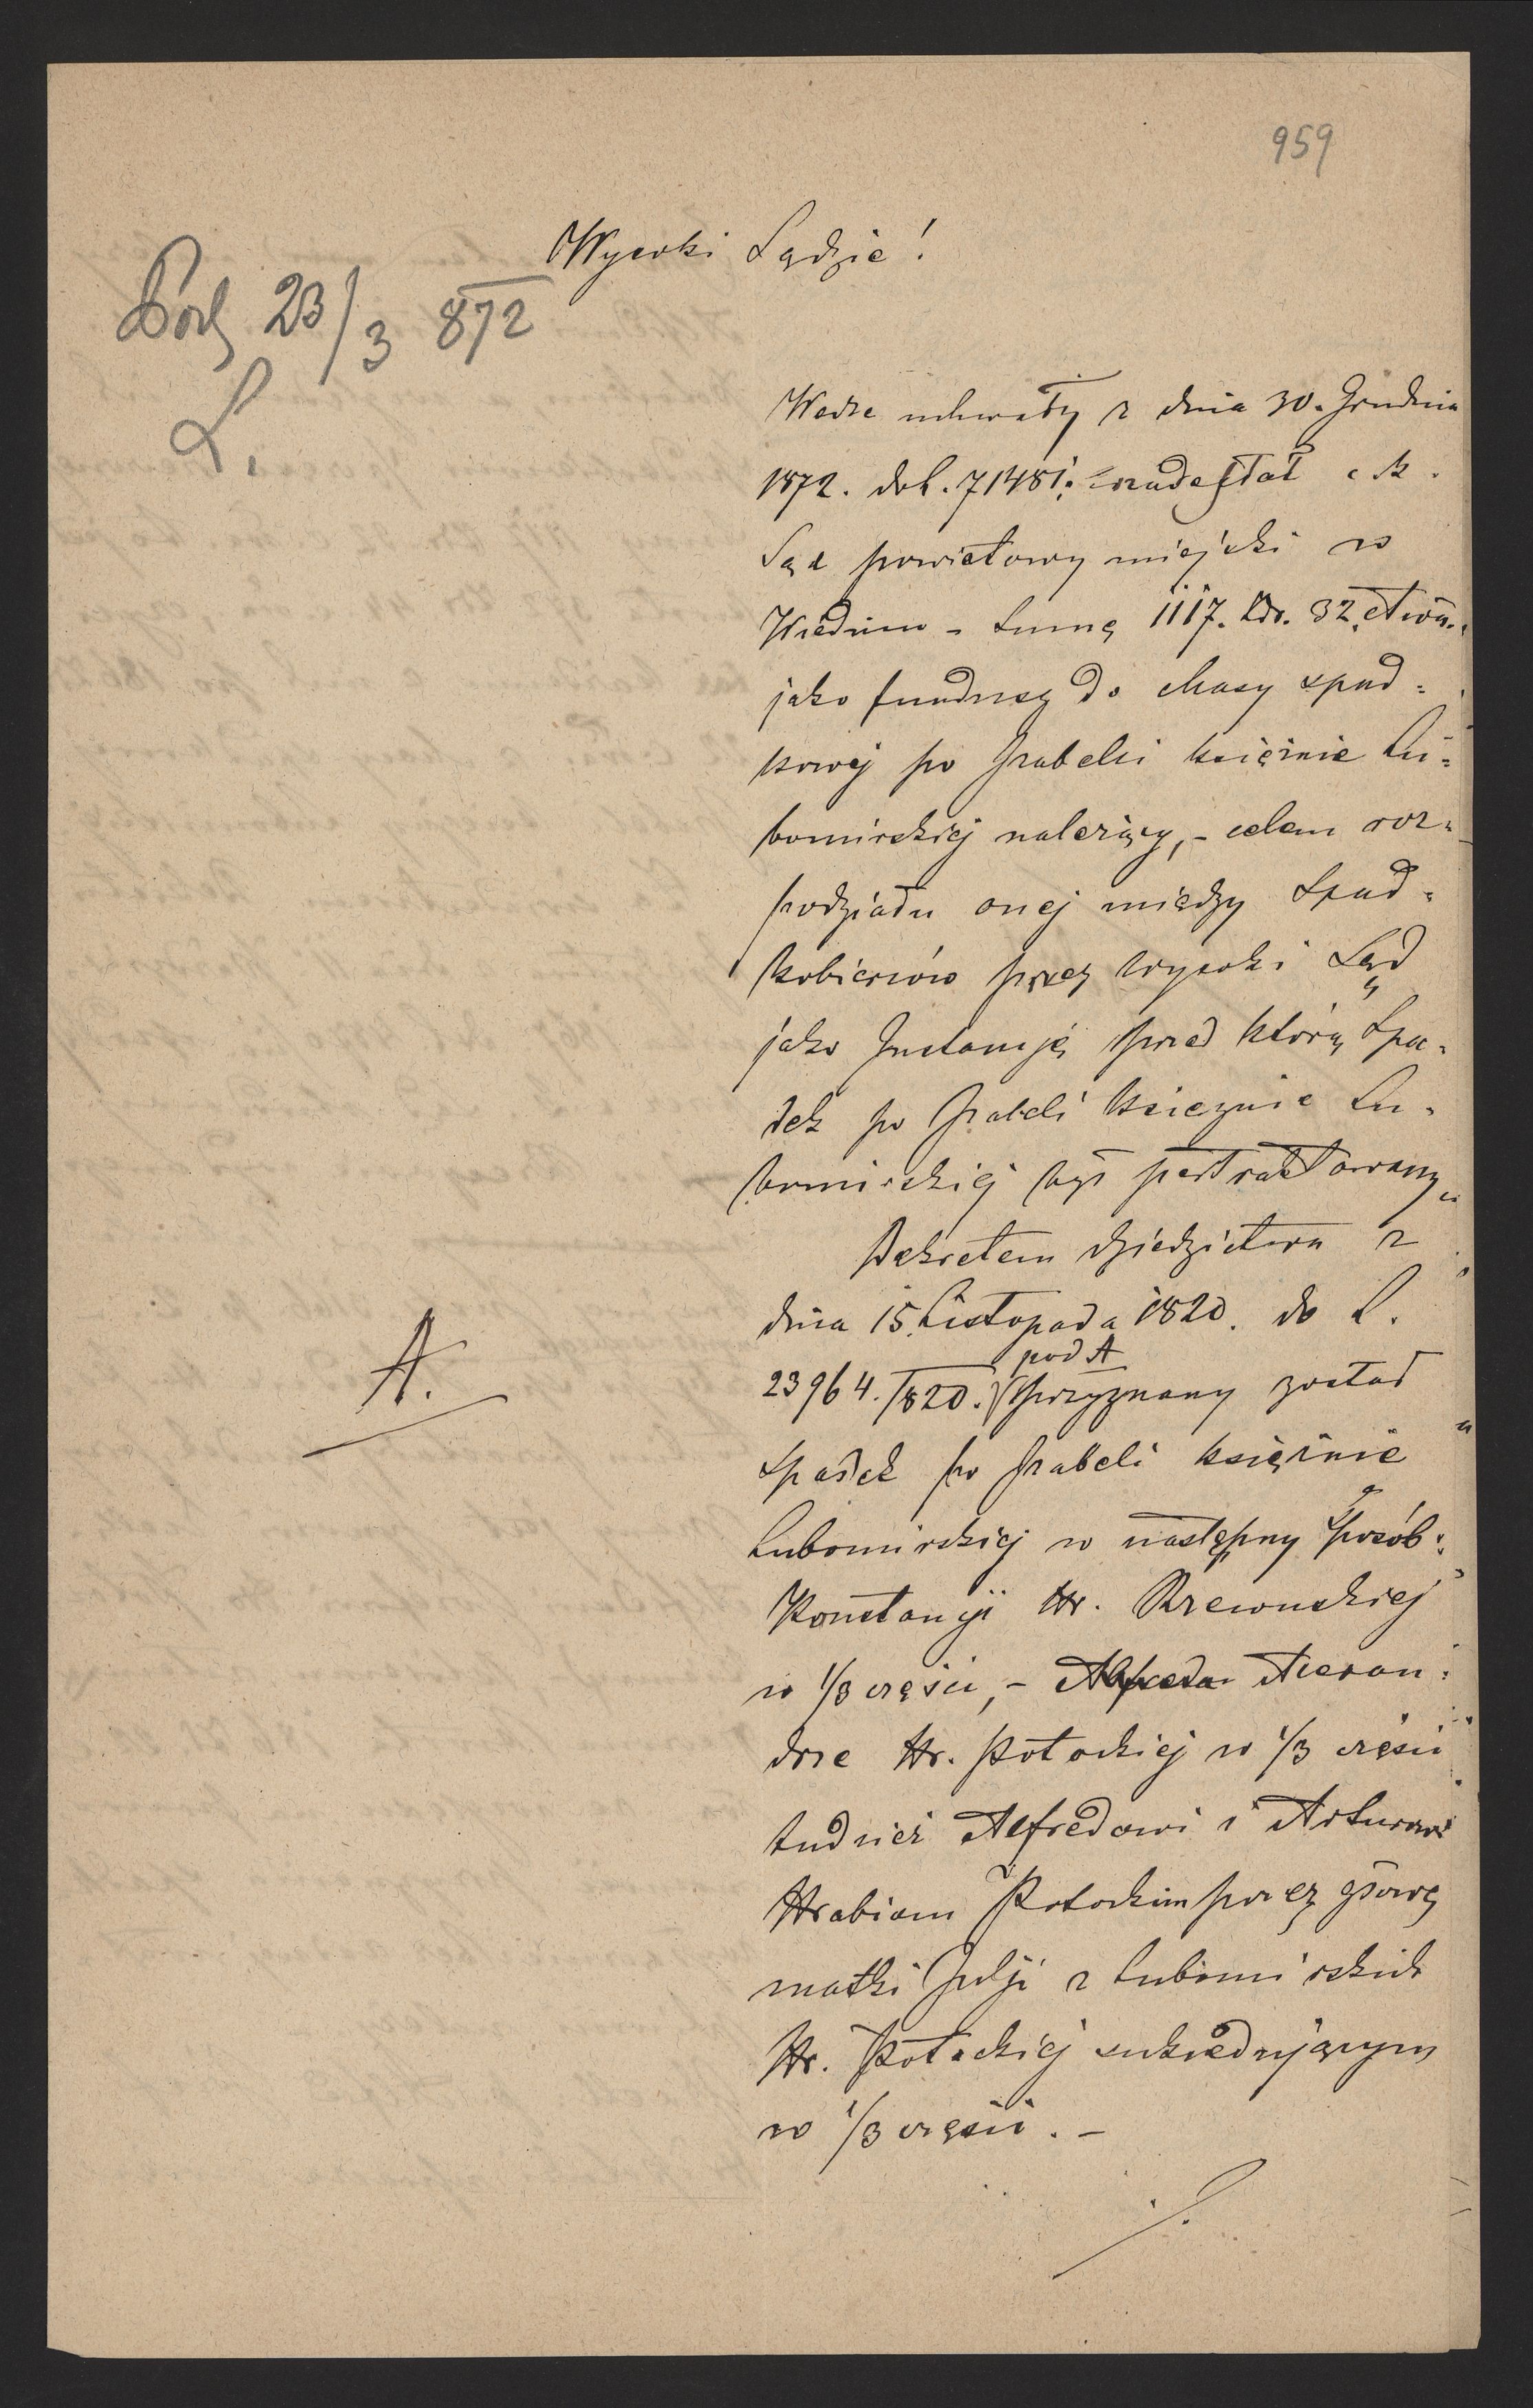 959
Wysoki Sądzie!
23/3 872
L.
Wedle uchwały z dnia 30. Grudnia
1872. do l. 71481. nadesłał c. k.
Sąd powiatowy miejski w
Wiedniu - Sumę 1117. Złr. 32.
jako fundusz do Masy spad=
kowej po Izabelli księżnie Lu=
bomirskiej należący, - celem roz=
podziału onej między Spad=
kobierców przez Wysoki Sąd
jako Instancję przed którą Spa=
dek po Izabeli Księżnie Lu=
bomirskiej był pertraktowany
Dekretem dziedzictwa z
dnia 15. Listopada 1820. do L.
pod A
23964./820. przyznany został
A.
Spadek po Izabeli księżnie
Lubomirskiej w następny sposób:
Konstancji Hr. Rzewuskiej
w 1/3 części, - Alfreda Alexan=
drze Hr. Potockiej w 1/3 części
tudzież Alfredowi i Arturowi
Hrabiom Potockim przez głowę
matki Julji z Lubomirskich
Hr. Potockiej sukcedującym
w 1/3 części. -
./.